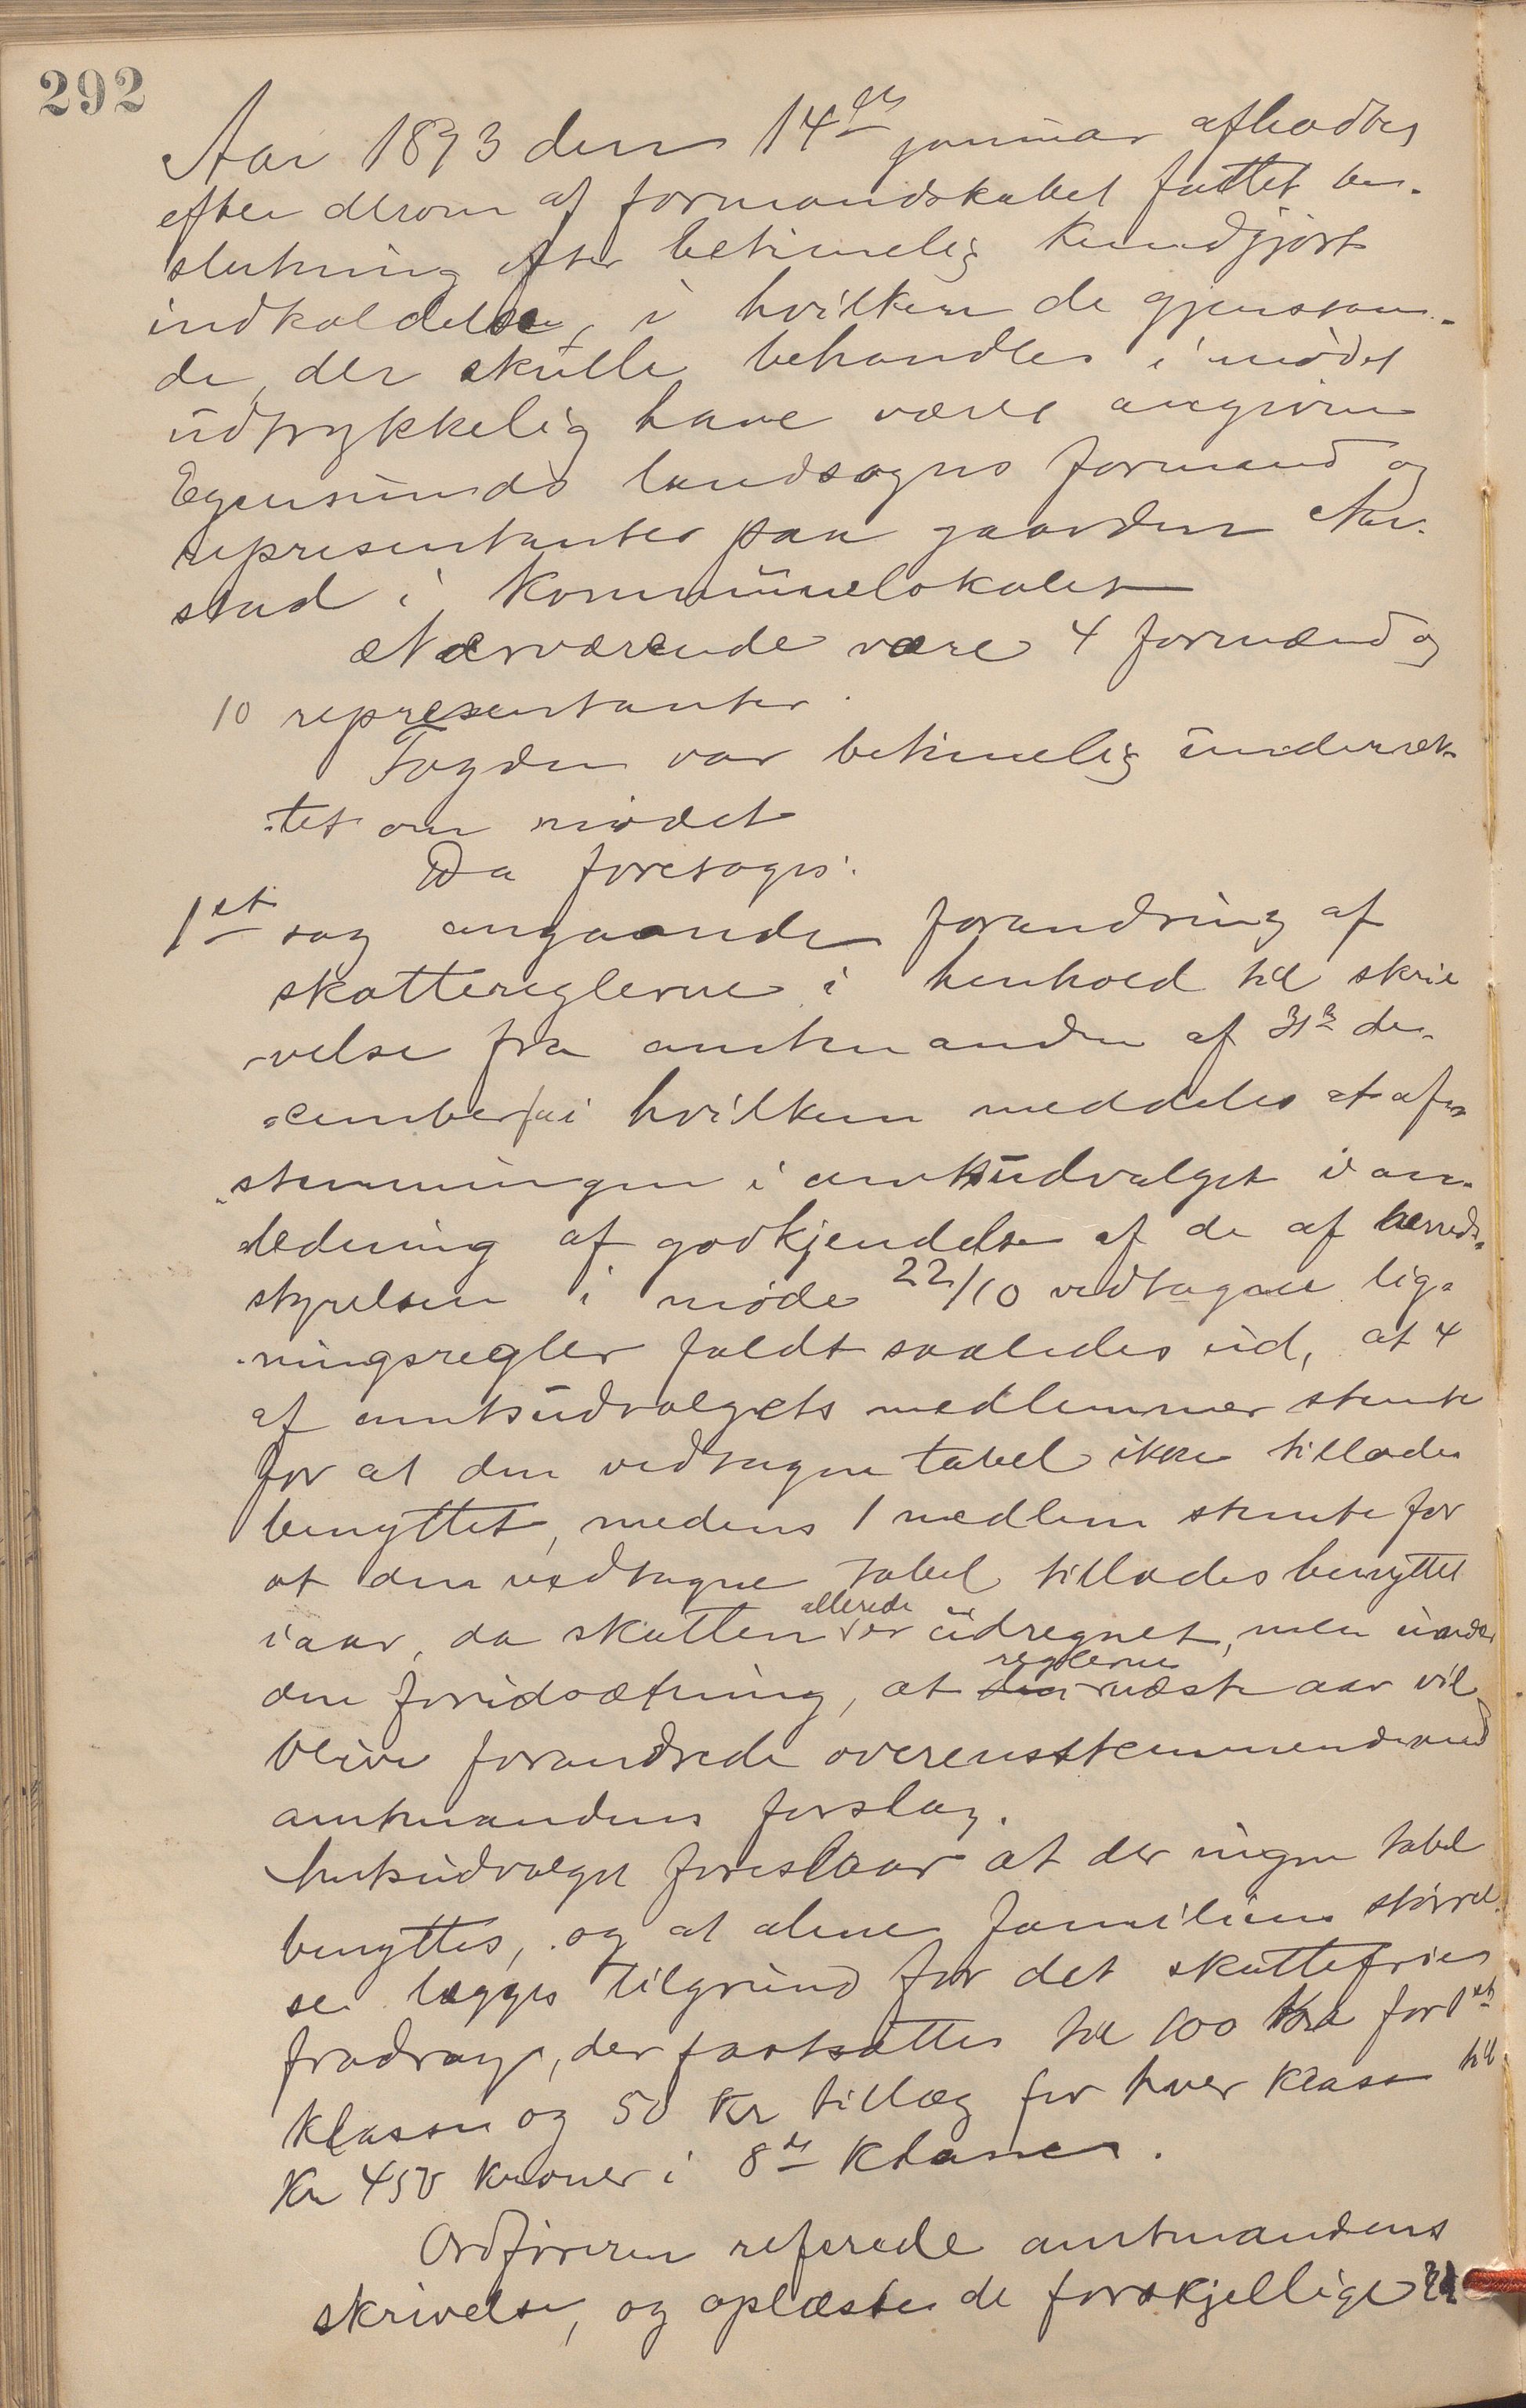 292
Aar 1893 den 14de januar afholdtes
efter derom af formandskabet fattet be-
slutning efter betimelig kundgjort
indkaldelse, i hvilken de gjenstan-
de, der skulle behandles i mødet
udtrykkelig have været angivne
Egersunds landsogns formænd og
representanter paa gaarden Aar-
stad i kommunelokalet
Nærværende være 4 formænd og
10 representanter.
Fogden var betimelig underret-
tet om mødet
Da foretoges:
1et sag angaaende forandring af
skattereglerne i henhold til skri
velse fra amtmanden af 31te de-
cember i hvilken meddeles at af-
stemningen i amtsudvalget i an-
ledning af godkjendelse af de af herreds-
styrelsen i møde 22/10 vedtagne lig-
ningsregler faldt saaledes ud, at 4
af amtsudvalgets medlemmer stemte
for at den vedtagne tabel ikke tillades
benyttet, medens 1 medlem stemte for
at den vedtagne tabel tillades benyttet
iaar, da skatten allerede er udregnet, men under
den foridsætning, at reglerne næste aar vil
blive forandrede overensstemmende med
amtmandens forslag.
Amtsudvalget foreslaar at der ingen tabel
benyttes, og at alene familiens størrel-
se lægges tilgrund for det skattefries
fradrag, der fastsættes til 100 Kr for 1ste
klasse og 50 Kr tillæg for hver klasse til
Kr 450 kroner i 8de klasse.
Ordføreren referede amtmandens
skrivelse, og oplæste de forskjellige